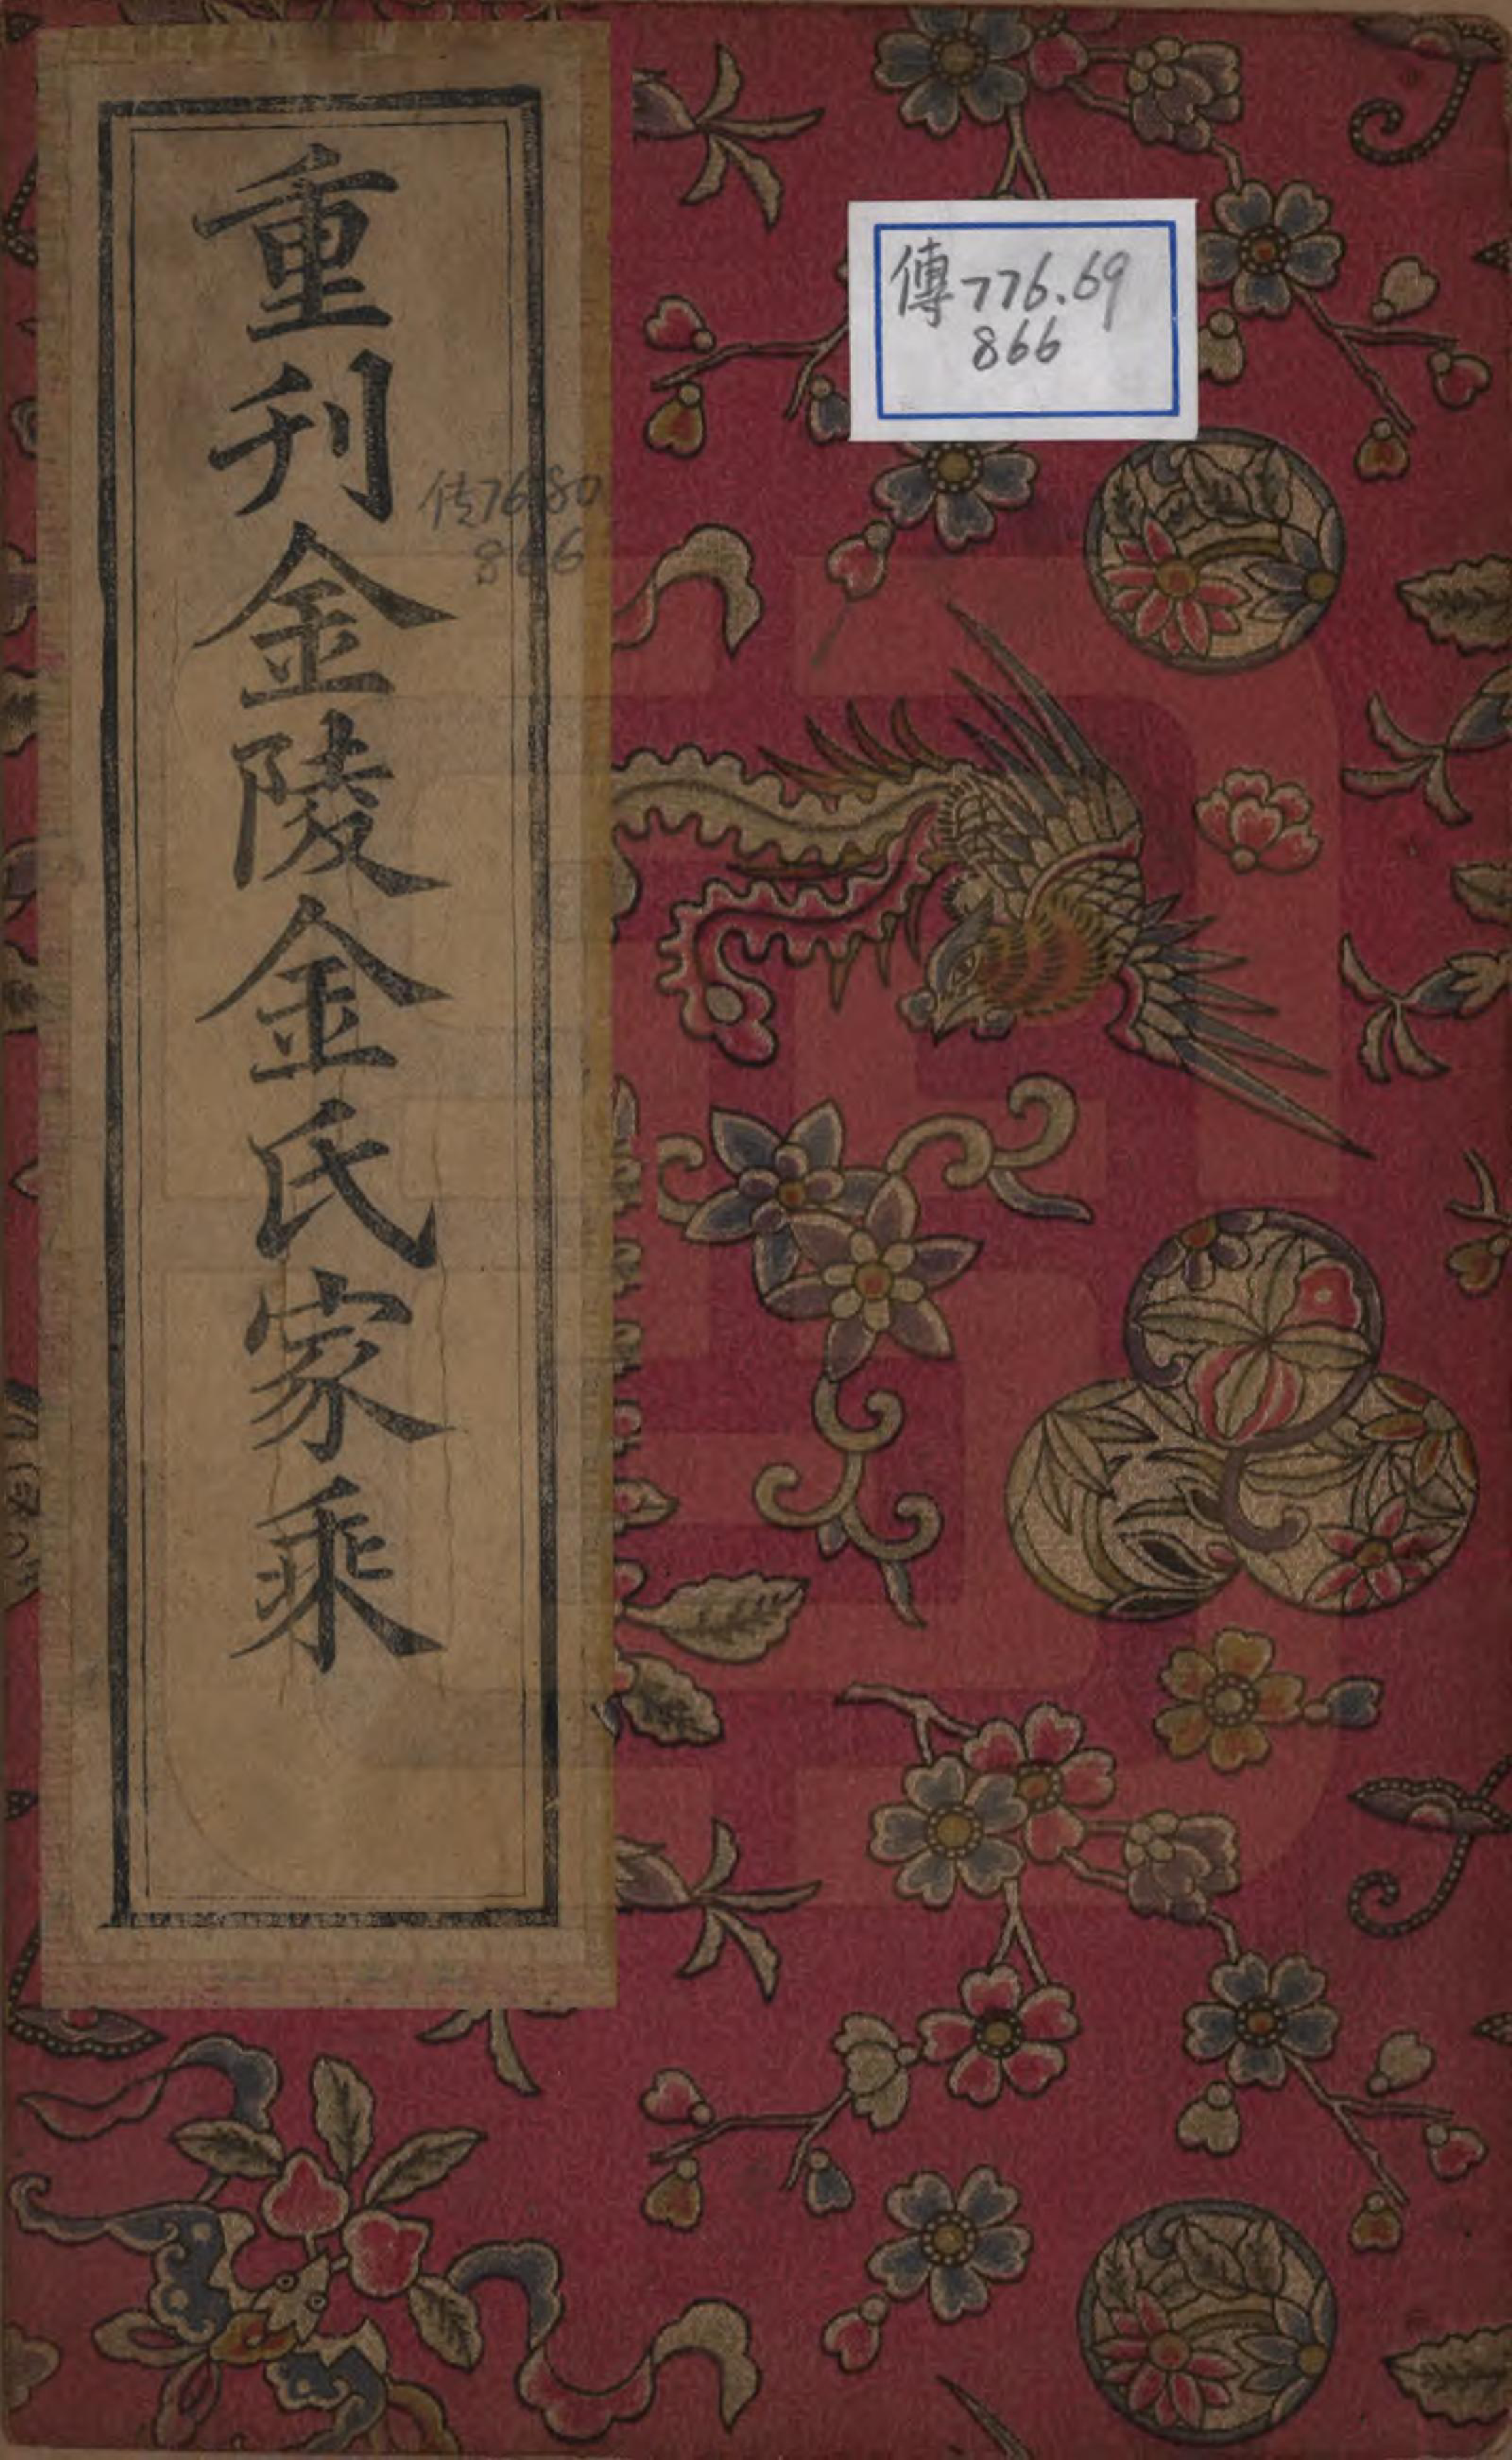 重刊金陵金氏家乘
傳776.69
866
传76.80
866